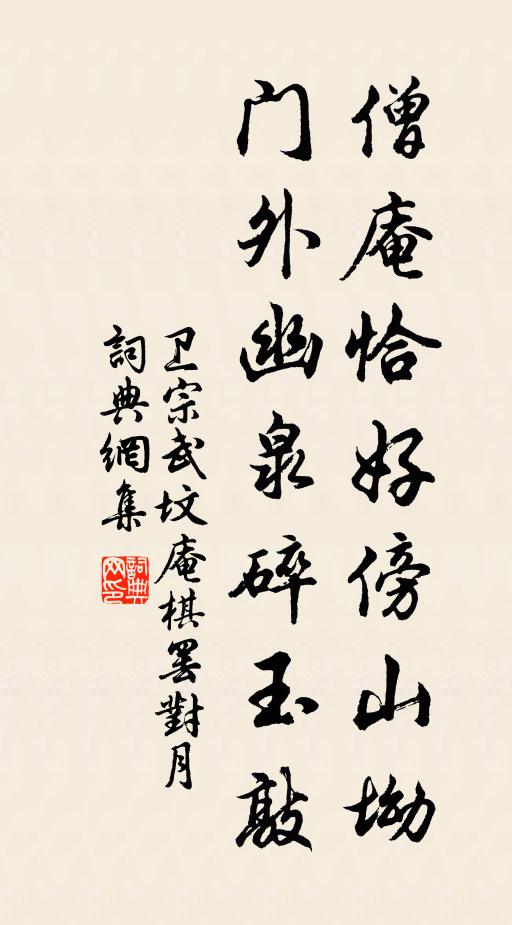 僧庵恰好傍山坳
门外幽泉碎玉敲
卫宗武坟庵棋罢對月
詞典網集
詞典网印